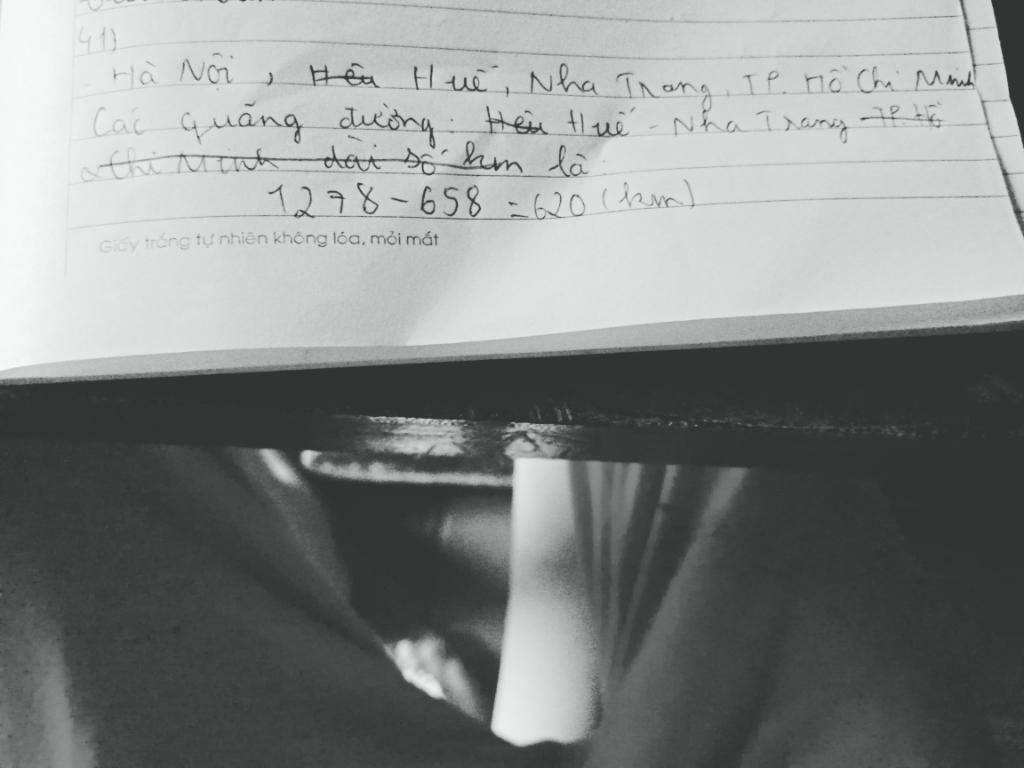 41)
- Hà Nội, Hêu Huế, Nha Trang, TP. Hồ Chí Minh
Các quãng đường: Hêu Huế - Nha Trang TP. Hồ
Chi Minh dài số km là:
1278 - 658 = 620 (km)
Giấy trắng tự nhiên không lóa, mỏi mắt